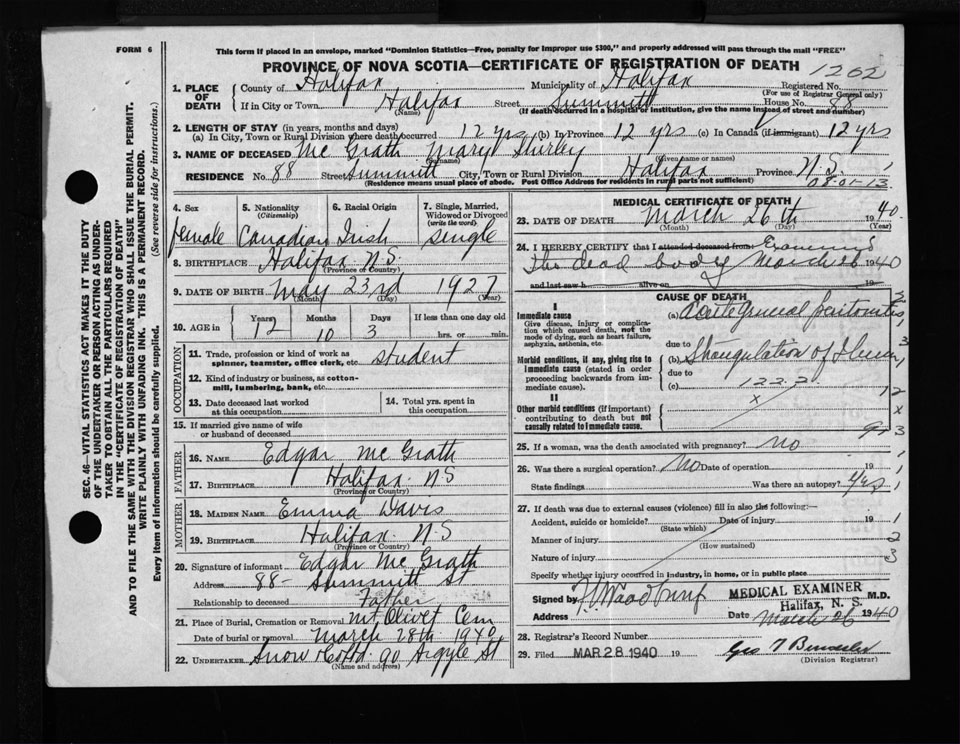 FORM 6
This form if placed in an envelope, marked "Dominion Statistics—Free, penalty for improper use $300," and properly addressed will pass through the mail "FREE"
PROVINCE OF NOVA SCOTIA—CERTIFICATE OF REGISTRATION OF DEATH 1202
SEC. 46—VITAL STATISTICS ACT MAKES IT THE DUTY
OF THE UNDERTAKER OR PERSON ACTING AS UNDER-
TAKER TO OBTAIN ALL THE PARTICULARS REQUIRED
IN THE "CERTIFICATE OF REGISTRATION OF DEATH"
AND TO FILE THE SAME WITH THE DIVISION REGISTRAR WHO SHALL ISSUE THE BURIAL PERMIT.
WRITE PLAINLY WITH UNFADING INK. THIS IS A PERMANENT RECORD.
Every item of Information should be carefully supplied. (See reverse side for instructions.)
1. PLACE OF DEATH
County of Halifax Municipality of Halifax Registered No.
(For use of Registrar General only)
If in City or Town Halifax Street Summitt House No. 88
(Name) (If death occurred in a hospital or institution, give the name instead of street and number)
2. LENGTH OF STAY (in years, months and days)
(a) In City, Town or Rural Division where death occurred 12 yrs (b) In Province 12 yrs (c) In Canada (if immigrant) 12 yrs
3. NAME OF DECEASED Mc Grath Mary Shirley
(Surname) (Given name or names)
RESIDENCE No. 88 Street Summitt City, Town or Rural Division Halifax Province N.S.
(Residence means usual place of abode. Post Office Address for residents in rural parts not sufficient) 08-01-13
4. Sex 5. Nationality (Citizenship) 6. Racial Origin 7. Single, Married, Widowed or Divorced (write the word)
female Canadian Irish Single
8. BIRTHPLACE Halifax N.S
(Province or Country)
9. DATE OF BIRTH May 23rd 1927
(Month) (Day) (Year)
10. AGE in Years Months Days If less than one day
12 10 3 hrs. or min.
OCCUPATION
11. Trade, profession or kind of work as spinner, teamster, office clerk, etc. student
12. Kind of industry or business, as cotton-mill, lumbering, bank, etc.
13. Date deceased last worked at this occupation
14. Total yrs. spent in this occupation
15. If married give name of wife or husband of deceased
FATHER
16. NAME Edgar Mc Grath
17. BIRTHPLACE Halifax N.S
(Province or Country)
MOTHER
18. MAIDEN NAME Emma Davis
19. BIRTHPLACE Halifax. N.S
(Province or Country)
20. Signature of informant Edgar Mc Grath
Address 88- Summitt St
Relationship to deceased Father
21. Place of Burial, Cremation or Removal Mt Olivet Cem
Date of burial or removal March 28th 1940
22. UNDERTAKER Snow & Co Ltd. 90 Argyle St
(Name and address)
MEDICAL CERTIFICATE OF DEATH
23. DATE OF DEATH March 26th 1940
(Month) (Day) (Year)
24. I HEREBY CERTIFY that I attended deceased from: Examined
The dead body March 26 1940
and last saw h alive on 19
CAUSE OF DEATH
I
Immediate cause
Give disease, injury or complication which caused death, not the mode of dying, such as heart failure, asphyxia, asthenia, etc.
(a) Acute General Peritonitis
due to
Morbid conditions, if any, giving rise to immediate cause (stated in order proceeding backwards from immediate cause).
(b) Strangulation of Ileum
due to
(c) 122.
x
II
Other morbid conditions (if important) contributing to death but not causally related to immediate cause.
25. If a woman, was the death associated with pregnancy? no
26. Was there a surgical operation? No Date of operation 19
State findings Was there an autopsy? yes
27. If death was due to external causes (violence) fill in also the following:—
Accident, suicide or homicide? Date of injury 19
(State which)
Manner of injury
(How sustained)
Nature of injury
Specify whether injury occurred in industry, in home, or in public place
Signed by M.D.
MEDICAL EXAMINER
Halifax, N. S.
Address Date March 26 1940
28. Registrar's Record Number
29. Filed MAR 28 1940 19
(Division Registrar)